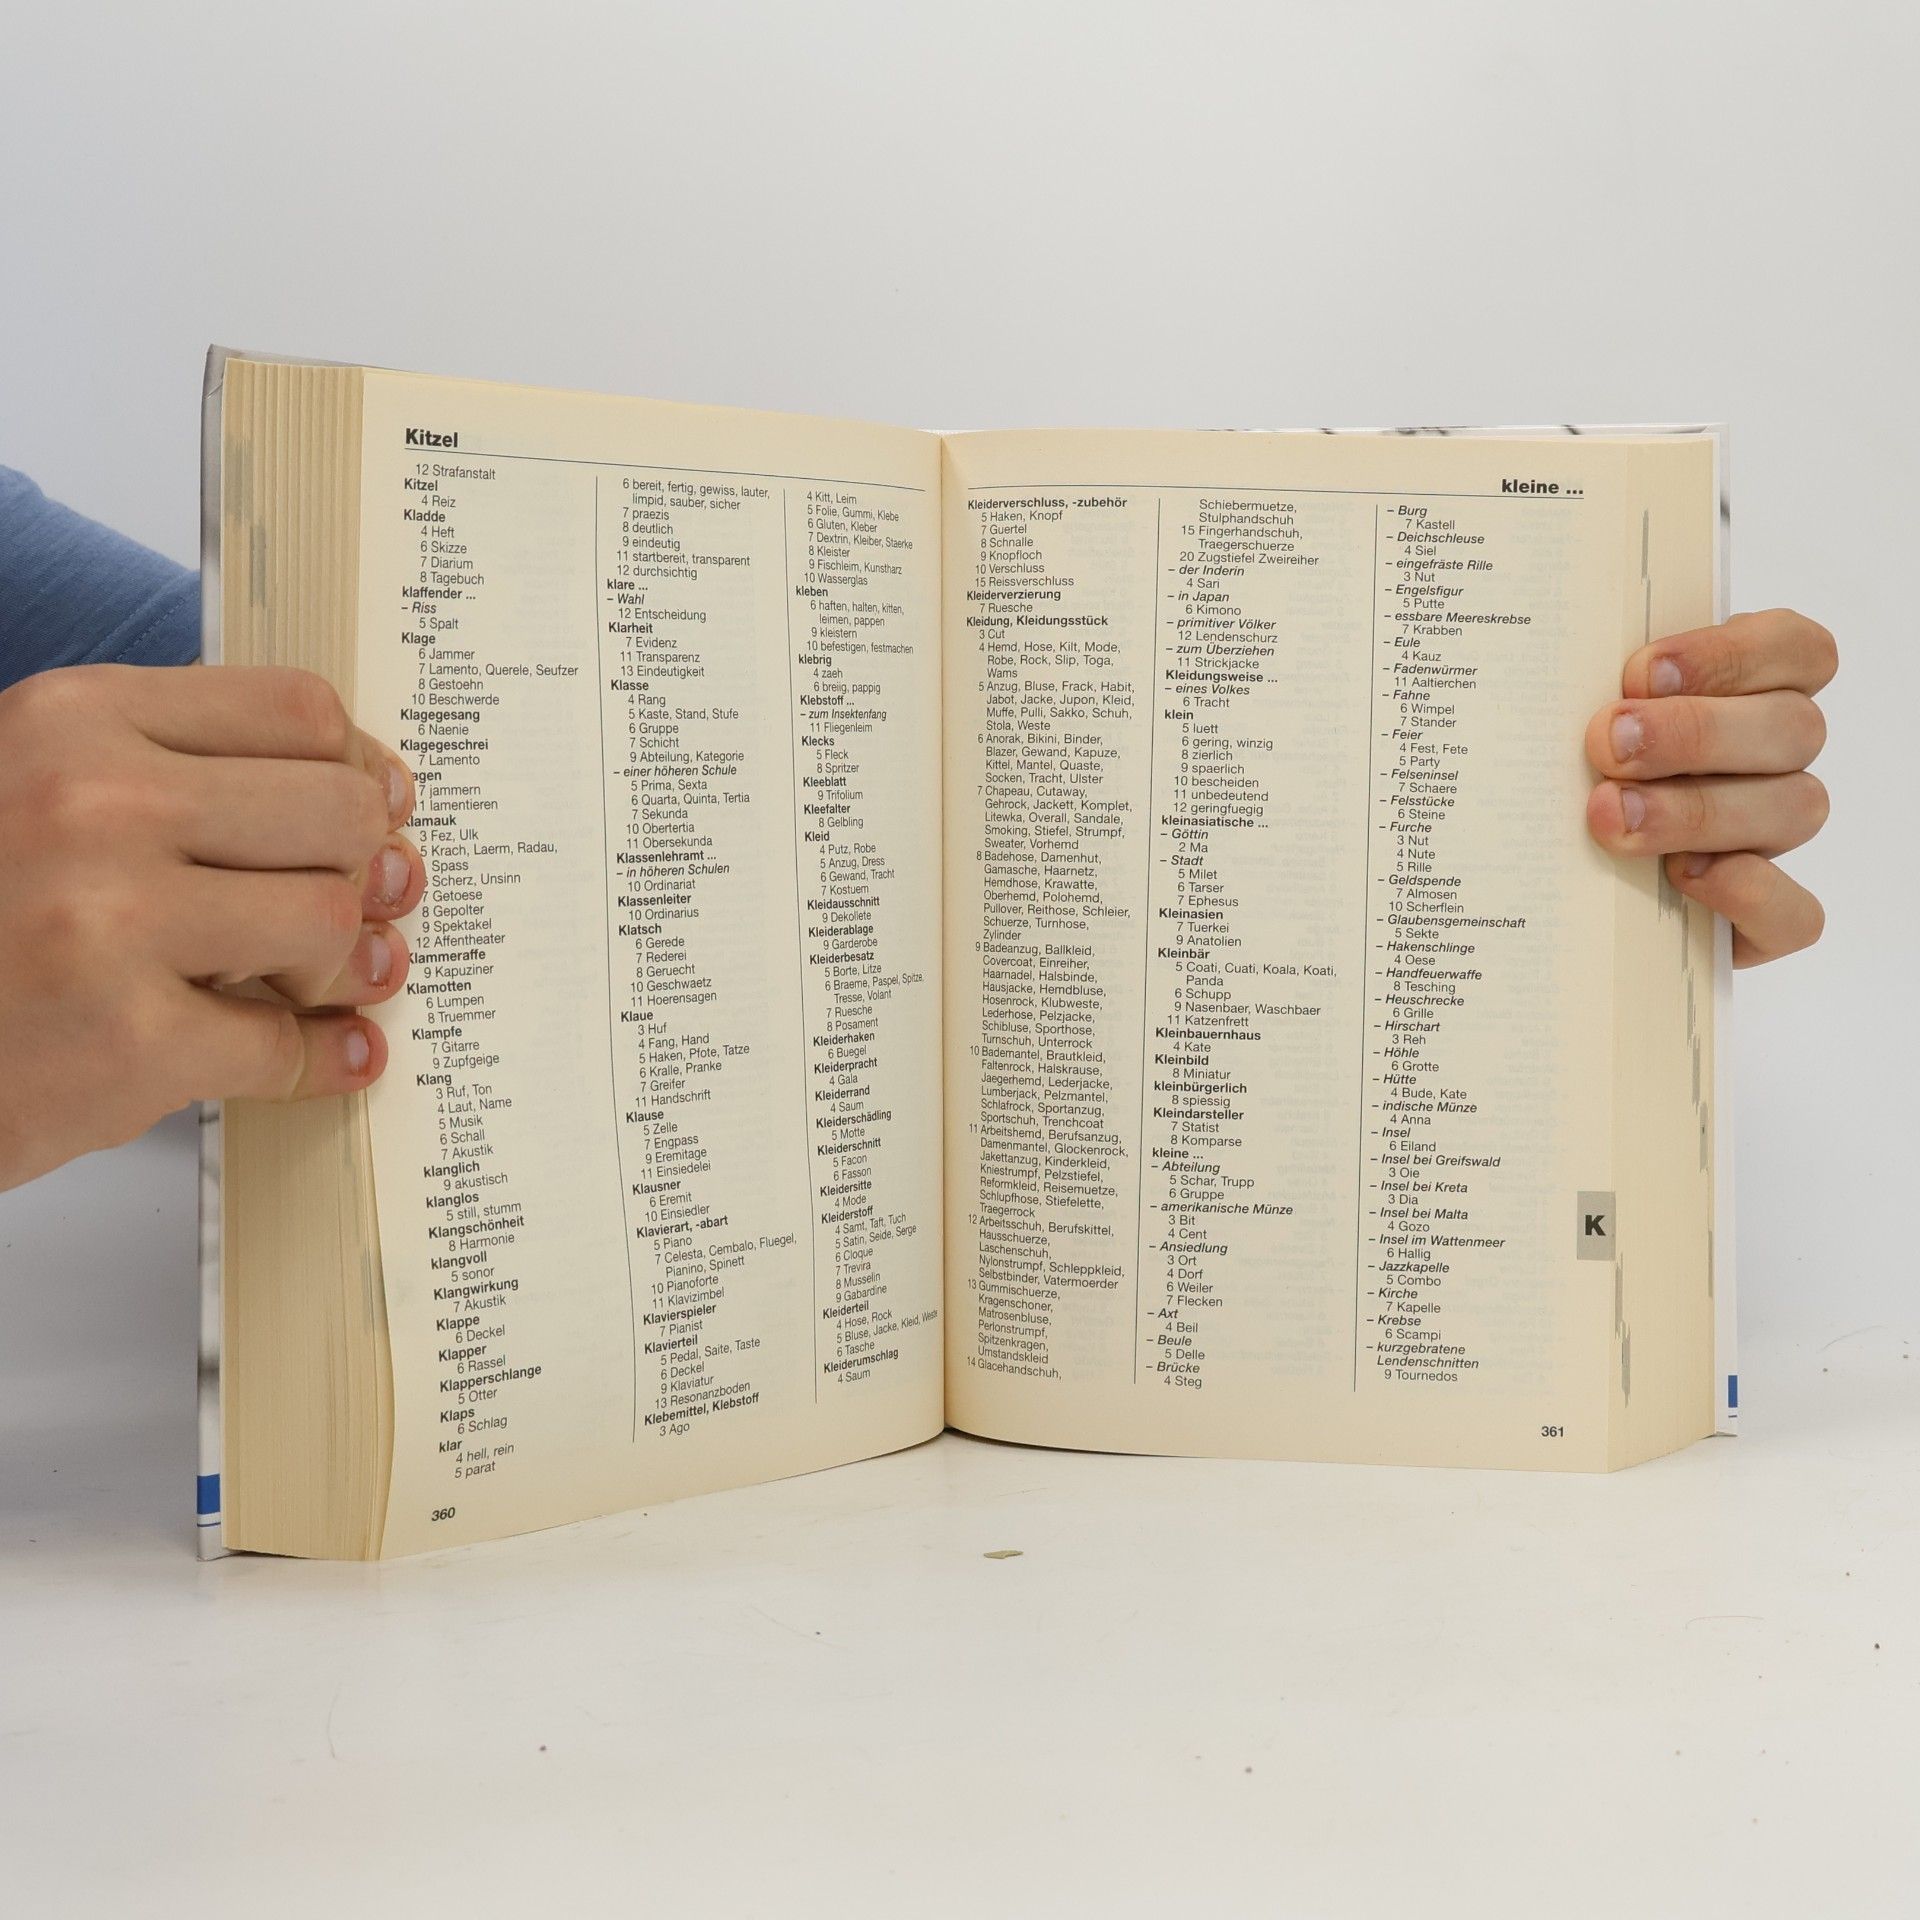 Kitzel
12 Strafanstalt
Kitzel
4 Reiz
Kladde
4 Heft
6 Skizze
7 Diarium
8 Tagebuch
klaffender ...
– Riss
5 Spalt
Klage
6 Jammer
7 Lamento, Querele, Seufzer
8 Gestoehn
10 Beschwerde
Klagegesang
6 Naenie
Klagegeschrei
7 Lamento
agen
7 jammern
11 lamentieren
Klamauk
3 Fez, Ulk
5 Krach, Laerm, Radau,
Spass
6 Scherz, Unsinn
7 Getoese
8 Gepolter
9 Spektakel
12 Affentheater
Klammeraffe
9 Kapuziner
Klamotten
6 Lumpen
8 Truemmer
Klampfe
7 Gitarre
9 Zupfgeige
Klang
3 Ruf, Ton
4 Laut, Name
5 Musik
6 Schall
7 Akustik
klanglich
9 akustisch
klanglos
5 still, stumm
Klangschönheit
8 Harmonie
klangvoll
5 sonor
Klangwirkung
7 Akustik
Klappe
6 Deckel
Klapper
6 Rassel
Klapperschlange
5 Otter
Klaps
6 Schlag
klar
4 hell, rein
5 parat
6 bereit, fertig, gewiss, lauter,
limpid, sauber, sicher
7 praezis
8 deutlich
9 eindeutig
11 startbereit, transparent
12 durchsichtig
klare ...
– Wahl
12 Entscheidung
Klarheit
7 Evidenz
11 Transparenz
13 Eindeutigkeit
Klasse
4 Rang
5 Kaste, Stand, Stufe
6 Gruppe
7 Schicht
9 Abteilung, Kategorie
– einer höheren Schule
5 Prima, Sexta
6 Quarta, Quinta, Tertia
7 Sekunda
10 Obertertia
11 Obersekunda
Klassenlehramt ...
– in höheren Schulen
10 Ordinariat
Klassenleiter
10 Ordinarius
Klatsch
6 Gerede
7 Rederei
8 Geruecht
10 Geschwaetz
11 Hoerensagen
Klaue
3 Huf
4 Fang, Hand
5 Haken, Pfote, Tatze
6 Kralle, Pranke
7 Greifer
11 Handschrift
Klause
5 Zelle
7 Engpass
9 Eremitage
11 Einsiedelei
Klausner
6 Eremit
10 Einsiedler
Klavierart, -abart
5 Piano
7 Celesta, Cembalo, Fluegel,
Pianino, Spinett
10 Pianoforte
11 Klavizimbel
Klavierspieler
7 Pianist
Klavierteil
5 Pedal, Saite, Taste
6 Deckel
9 Klaviatur
13 Resonanzboden
Klebemittel, Klebstoff
3 Ago
4 Kitt, Leim
5 Folie, Gummi, Klebe
6 Gluten, Kleber
7 Dextrin, Kleiber, Staerke
8 Kleister
9 Fischleim, Kunstharz
10 Wasserglas
kleben
6 haften, halten, kitten,
leimen, pappen
9 kleistern
10 befestigen, festmachen
klebrig
4 zaeh
6 breiig, pappig
Klebstoff ...
– zum Insektenfang
11 Fliegenleim
Klecks
5 Fleck
8 Spritzer
Kleeblatt
9 Trifolium
Kleefalter
8 Gelbling
Kleid
4 Putz, Robe
5 Anzug, Dress
6 Gewand, Tracht
7 Kostuem
Kleidausschnitt
9 Dekollete
Kleiderablage
9 Garderobe
Kleiderbesatz
5 Borte, Litze
6 Braeme, Paspel, Spitze,
Tresse, Volant
7 Ruesche
8 Posament
Kleiderhaken
6 Buegel
Kleiderpracht
4 Gala
Kleiderrand
4 Saum
Kleiderschädling
5 Motte
Kleiderschnitt
5 Facon
6 Fasson
Kleidersitte
4 Mode
Kleiderstoff
4 Samt, Taft, Tuch
5 Satin, Seide, Serge
6 Cloque
7 Trevira
8 Musselin
9 Gabardine
Kleiderteil
4 Hose, Rock
5 Bluse, Jacke, Kleid, Weste
6 Tasche
Kleiderumschlag
4 Saum
360
kleine ...
Kleiderverschluss, -zubehör
5 Haken, Knopf
7 Guertel
8 Schnalle
9 Knopfloch
10 Verschluss
15 Reissverschluss
Kleiderverzierung
7 Ruesche
Kleidung, Kleidungsstück
3 Cut
4 Hemd, Hose, Kilt, Mode,
Robe, Rock, Slip, Toga,
Wams
5 Anzug, Bluse, Frack, Habit,
Jabot, Jacke, Jupon, Kleid,
Muffe, Pulli, Sakko, Schuh,
Stola, Weste
6 Anorak, Bikini, Binder,
Blazer, Gewand, Kapuze,
Kittel, Mantel, Quaste,
Socken, Tracht, Ulster
7 Chapeau, Cutaway,
Gehrock, Jackett, Komplet,
Litewka, Overall, Sandale,
Smoking, Stiefel, Strumpf,
Sweater, Vorhemd
8 Badehose, Damenhut,
Gamasche, Haarnetz,
Hemdhose, Krawatte,
Oberhemd, Polohemd,
Pullover, Reithose, Schleier,
Schuerze, Turnhose,
Zylinder
9 Badeanzug, Ballkleid,
Covercoat, Einreiher,
Haarnadel, Halsbinde,
Hausjacke, Hemdbluse,
Hosenrock, Klubweste,
Lederhose, Pelzjacke,
Schibluse, Sporthose,
Turnschuh, Unterrock
10 Bademantel, Brautkleid,
Faltenrock, Halskrause,
Jaegerhemd, Lederjacke,
Lumberjack, Pelzmantel,
Schlafrock, Sportanzug,
Sportschuh, Trenchcoat
11 Arbeitshemd, Berufsanzug,
Damenmantel, Glockenrock,
Jakettanzug, Kinderkleid,
Kniestrumpf, Pelzstiefel,
Reformkleid, Reisemuetze,
Schlupfhose, Stiefelette,
Traegerrock
12 Arbeitsschuh, Berufskittel,
Hausschuerze,
Laschenschuh,
Nylonstrumpf, Schleppkleid,
Selbstbinder, Vatermoerder
13 Gummischuerze,
Kragenschoner,
Matrosenbluse,
Perlonstrumpf,
Spitzenkragen,
Umstandskleid
14 Glacehandschuh,
Schiebermuetze,
Stulphandschuh
15 Fingerhandschuh,
Traegerschuerze
20 Zugstiefel Zweireiher
– der Inderin
4 Sari
– in Japan
6 Kimono
– primitiver Völker
12 Lendenschurz
– zum Überziehen
11 Strickjacke
Kleidungsweise ...
– eines Volkes
6 Tracht
klein
5 luett
6 gering, winzig
8 zierlich
9 spaerlich
10 bescheiden
11 unbedeutend
12 geringfuegig
kleinasiatische ...
– Göttin
2 Ma
– Stadt
5 Milet
6 Tarser
7 Ephesus
Kleinasien
7 Tuerkei
9 Anatolien
Kleinbär
5 Coati, Cuati, Koala, Koati,
Panda
6 Schupp
9 Nasenbaer, Waschbaer
11 Katzenfrett
Kleinbauernhaus
4 Kate
Kleinbild
8 Miniatur
kleinbürgerlich
8 spiessig
Kleindarsteller
7 Statist
8 Komparse
kleine ...
– Abteilung
5 Schar, Trupp
6 Gruppe
– amerikanische Münze
3 Bit
4 Cent
– Ansiedlung
3 Ort
4 Dorf
6 Weiler
7 Flecken
– Axt
4 Beil
– Beule
5 Delle
– Brücke
4 Steg
– Burg
7 Kastell
– Deichschleuse
4 Siel
– eingefräste Rille
3 Nut
– Engelsfigur
5 Putte
– essbare Meereskrebse
7 Krabben
– Eule
4 Kauz
– Fadenwürmer
11 Aaltierchen
– Fahne
6 Wimpel
7 Stander
– Feier
4 Fest, Fete
5 Party
– Felseninsel
7 Schaere
– Felsstücke
6 Steine
– Furche
3 Nut
4 Nute
5 Rille
– Geldspende
7 Almosen
10 Scherflein
– Glaubensgemeinschaft
5 Sekte
– Hakenschlinge
4 Oese
– Handfeuerwaffe
8 Tesching
– Heuschrecke
6 Grille
– Hirschart
3 Reh
– Höhle
6 Grotte
– Hütte
4 Bude, Kate
– indische Münze
4 Anna
– Insel
6 Eiland
– Insel bei Greifswald
3 Oie
– Insel bei Kreta
3 Dia
– Insel bei Malta
4 Gozo
– Insel im Wattenmeer
6 Hallig
– Jazzkapelle
5 Combo
– Kirche
7 Kapelle
– Krebse
6 Scampi
– kurzgebratene
Lendenschnitten
9 Tournedos
K
361